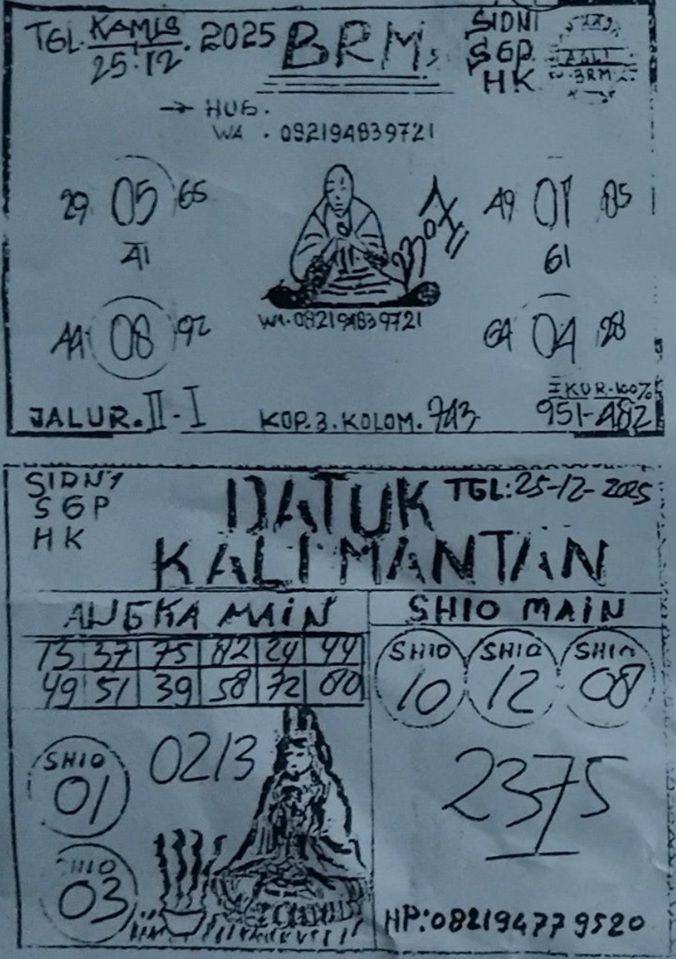 TGL. KAMIS 25.12. 2025
BRM
SIDNI
SGP
HK
ASLI
BRM
→ HUB.
WA . 082194839721
29 05 65
41
44 08 92
49 01 85
61
64 04 28
WA. 082194839721
JALUR. II - I
KOP. 3. KOLOM. 743
EKOR. 100%
951-482
SIDNY
SGP
HK
DATUK
KALIMANTAN
TGL: 25-12-2025
ANGKA MAIN
15 37 75 82 24 44
49 51 39 58 72 80
SHIO MAIN
SHIO 10
SHIO 12
SHIO 08
SHIO 01
0213
SHIO 03
2375
HP: 082194779520